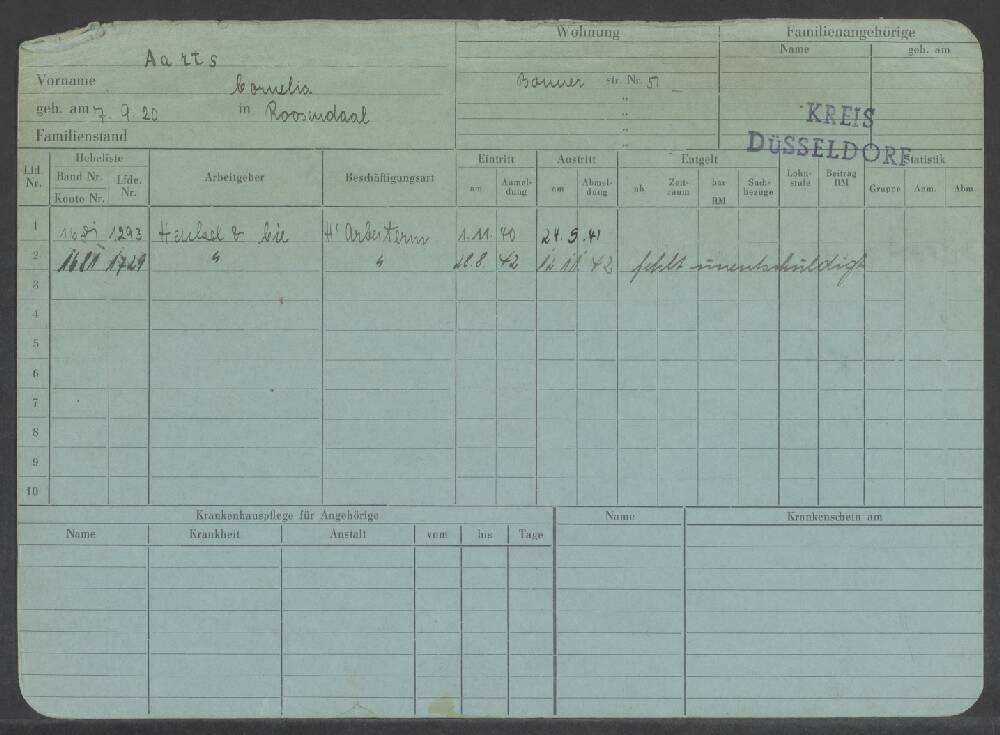 Wohnung Familienangehörige
Aarts
Name geb. am
Vorname Cornelia
Bonner str. Nr. 51
geb. am 7.9.20 in Roosendaal
"
"
"
Familienstand
KREIS
DÜSSELDORF
Lfd. Nr. Hebeliste Band Nr. Konto Nr. Lfde. Nr. Arbeitgeber Beschäftigungsart Eintritt am Anmeldung Austritt am Abmeldung Entgelt ab Zeitraum bar RM Sachbezüge Lohnstufe Beitrag RM Statistik Gruppe Anm. Abm.
1 1293 Henkel & Cie H' Arbeiterin 1.11. 40 24.9.41
2 1729 " " 42 42 fehlt unentschuldigt
3
4
5
6
7
8
9
10
Krankenhauspflege für Angehörige Name Krankenschein am
Name Krankheit Anstalt vom bis Tage